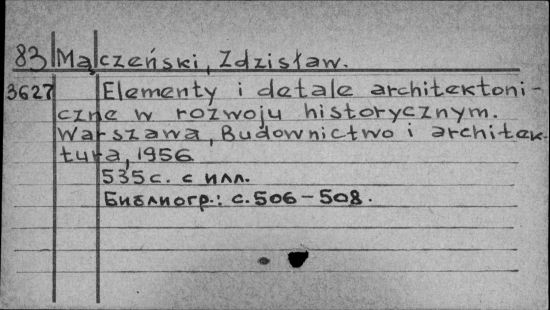 83 Mączeński, Zdzisław.
3627 Elementy i detale architektoni-
czne w rozwoju historycznym.
Warszawa, Budownictwo i architek-
tura, 1956
535 с. с илл.
Библиогр.: с. 506-508.